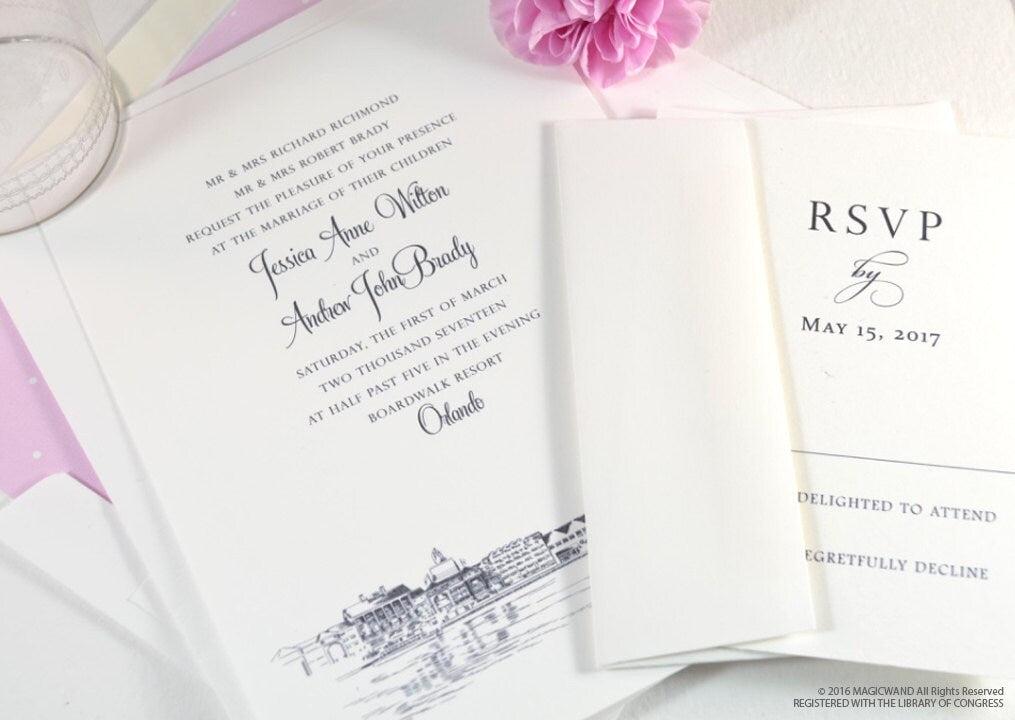 MR & MRS RICHARD RICHMOND
MR & MRS ROBERT BRADY
REQUEST THE PLEASURE OF YOUR PRESENCE
AT THE MARRIAGE OF THEIR CHILDREN
Jessica Anne Wilton
AND
Andrew John Brady
SATURDAY, THE FIRST OF MARCH
TWO THOUSAND SEVENTEEN
AT HALF PAST FIVE IN THE EVENING
BOARDWALK RESORT
Orlando
RSVP
by
MAY 15, 2017
DELIGHTED TO ATTEND
EGRETFULLY DECLINE
© 2016 MAGICWAND All Rights Reserved
REGISTERED WITH THE LIBRARY OF CONGRESS